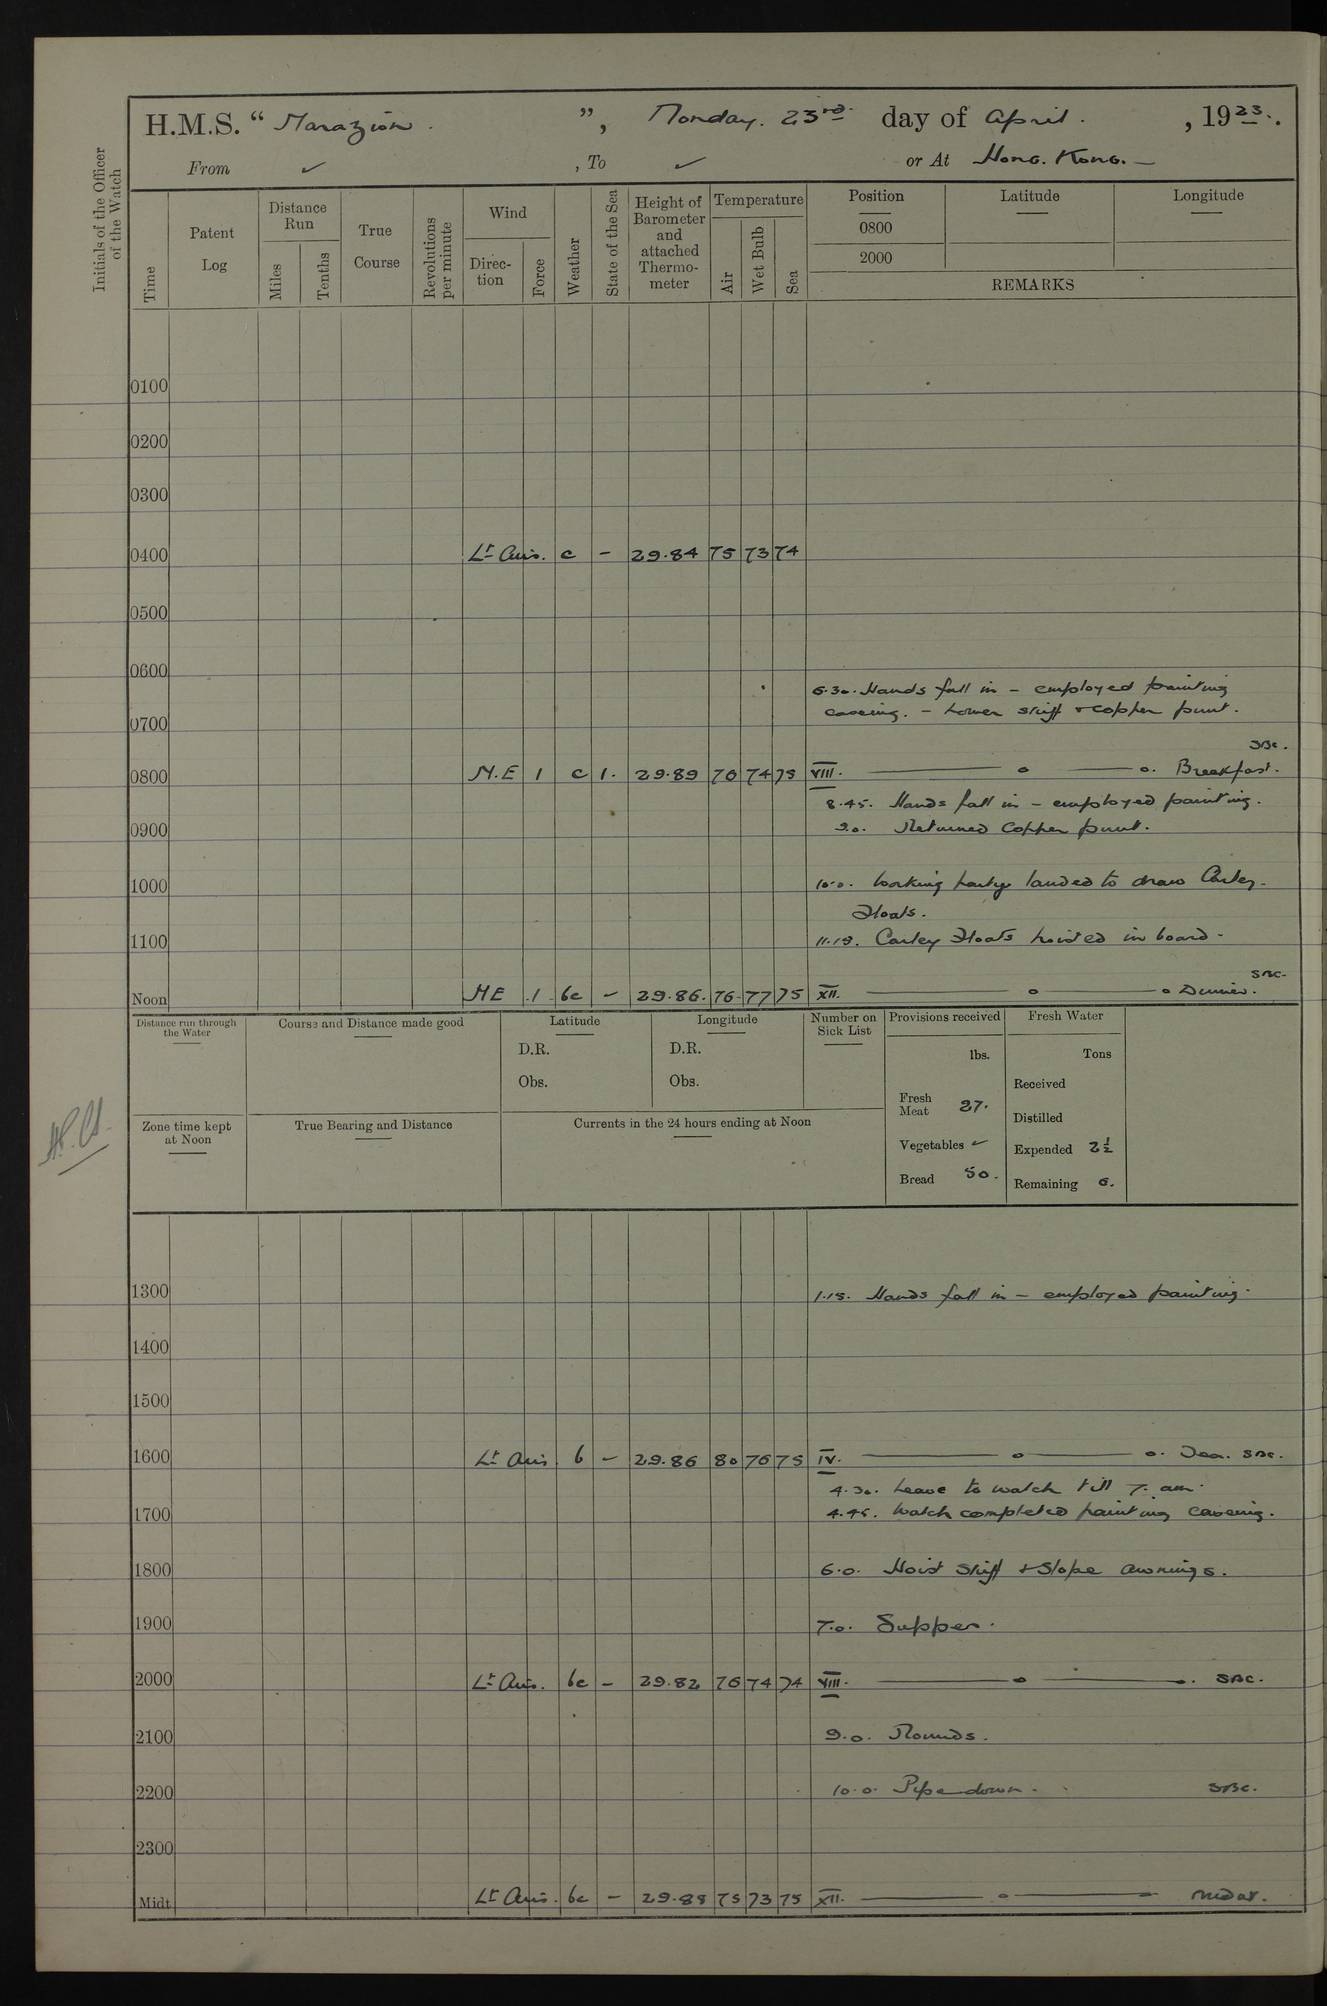 H.M.S. " Marazion. ", Monday. 23rd day of April. , 1923.
From ✓ , To ✓ or At Hong. Kong. —
Initials of the Officer
of the Watch
Time
Patent
Log
Distance
Run
Miles
Tenths
True
Course
Revolutions
per minute
Wind
Direc-
tion
Force
Weather
State of the Sea
Height of
Barometer
and
attached
Thermo-
meter
Temperature
Air
Wet Bulb
Sea
Position
0800
2000
Latitude
Longitude
REMARKS
0100
0200
0300
0400 Lt Airs. c – 29.84 75 73 74
0500
0600
6.30. Hands fall in – employed painting
0700 casing. – Lower skiff + copper punt.
SBC.
0800 N.E 1 c 1. 29.89 76 74 75 VIII. — o — o. Breakfast.
8.45. Hands fall in – employed painting.
0900 9.0. Returned Copper punt.
1000 10.0. Working party landed to draw Carley
Floats.
1100 11.15. Carley Floats hoisted in board.
SBC.
Noon NE .1 bc – 29.86. 76 77 75 XII. — o — o Dinner.
Distance run through
the Water
Course and Distance made good
Latitude
D.R.
Obs.
Longitude
D.R.
Obs.
Number on
Sick List
Provisions received
lbs.
Fresh
Meat 27.
Vegetables ✓
Bread 50.
Fresh Water
Tons
Received
Distilled
Expended 2½
Remaining 6.
Zone time kept
at Noon
True Bearing and Distance
Currents in the 24 hours ending at Noon
1300 1.15. Hands fall in – employed painting.
1400
1500
1600 Lt Airs b – 29.86 80 76 75 IV. — o — o. Tea. SBC.
4.30. Leave to watch till 7. am.
1700 4.45. Watch completed painting casing.
1800 6.0. Hoist Skiff + Slope awnings.
1900 7.0. Supper.
2000 Lt Airs. bc – 29.82 76 74 74 VIII. — o — . SBC.
2100 9.0. Rounds.
2200 10.0. Pipe down. SBC.
2300
Midt Lt Airs. bc – 29.88 75 73 75 XII. — o —